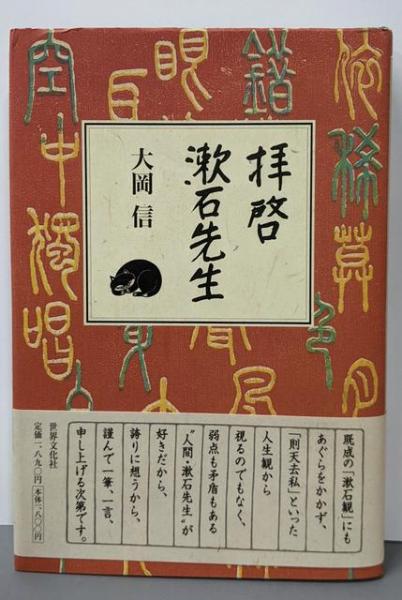 拝啓
漱石先生
大岡 信
依稀暮色月
錯
眼耳
空中独唱
既成の「漱石観」にも
あぐらをかかず、
「則天去私」といった
人生観から
視るのでもなく、
弱点も矛盾もある
“人間・漱石先生”が
好きだから、
誇りに想うから、
謹んで一筆、一言、
申し上げる次第です。
世界文化社
定価一、八九〇円 本体一、八〇〇円